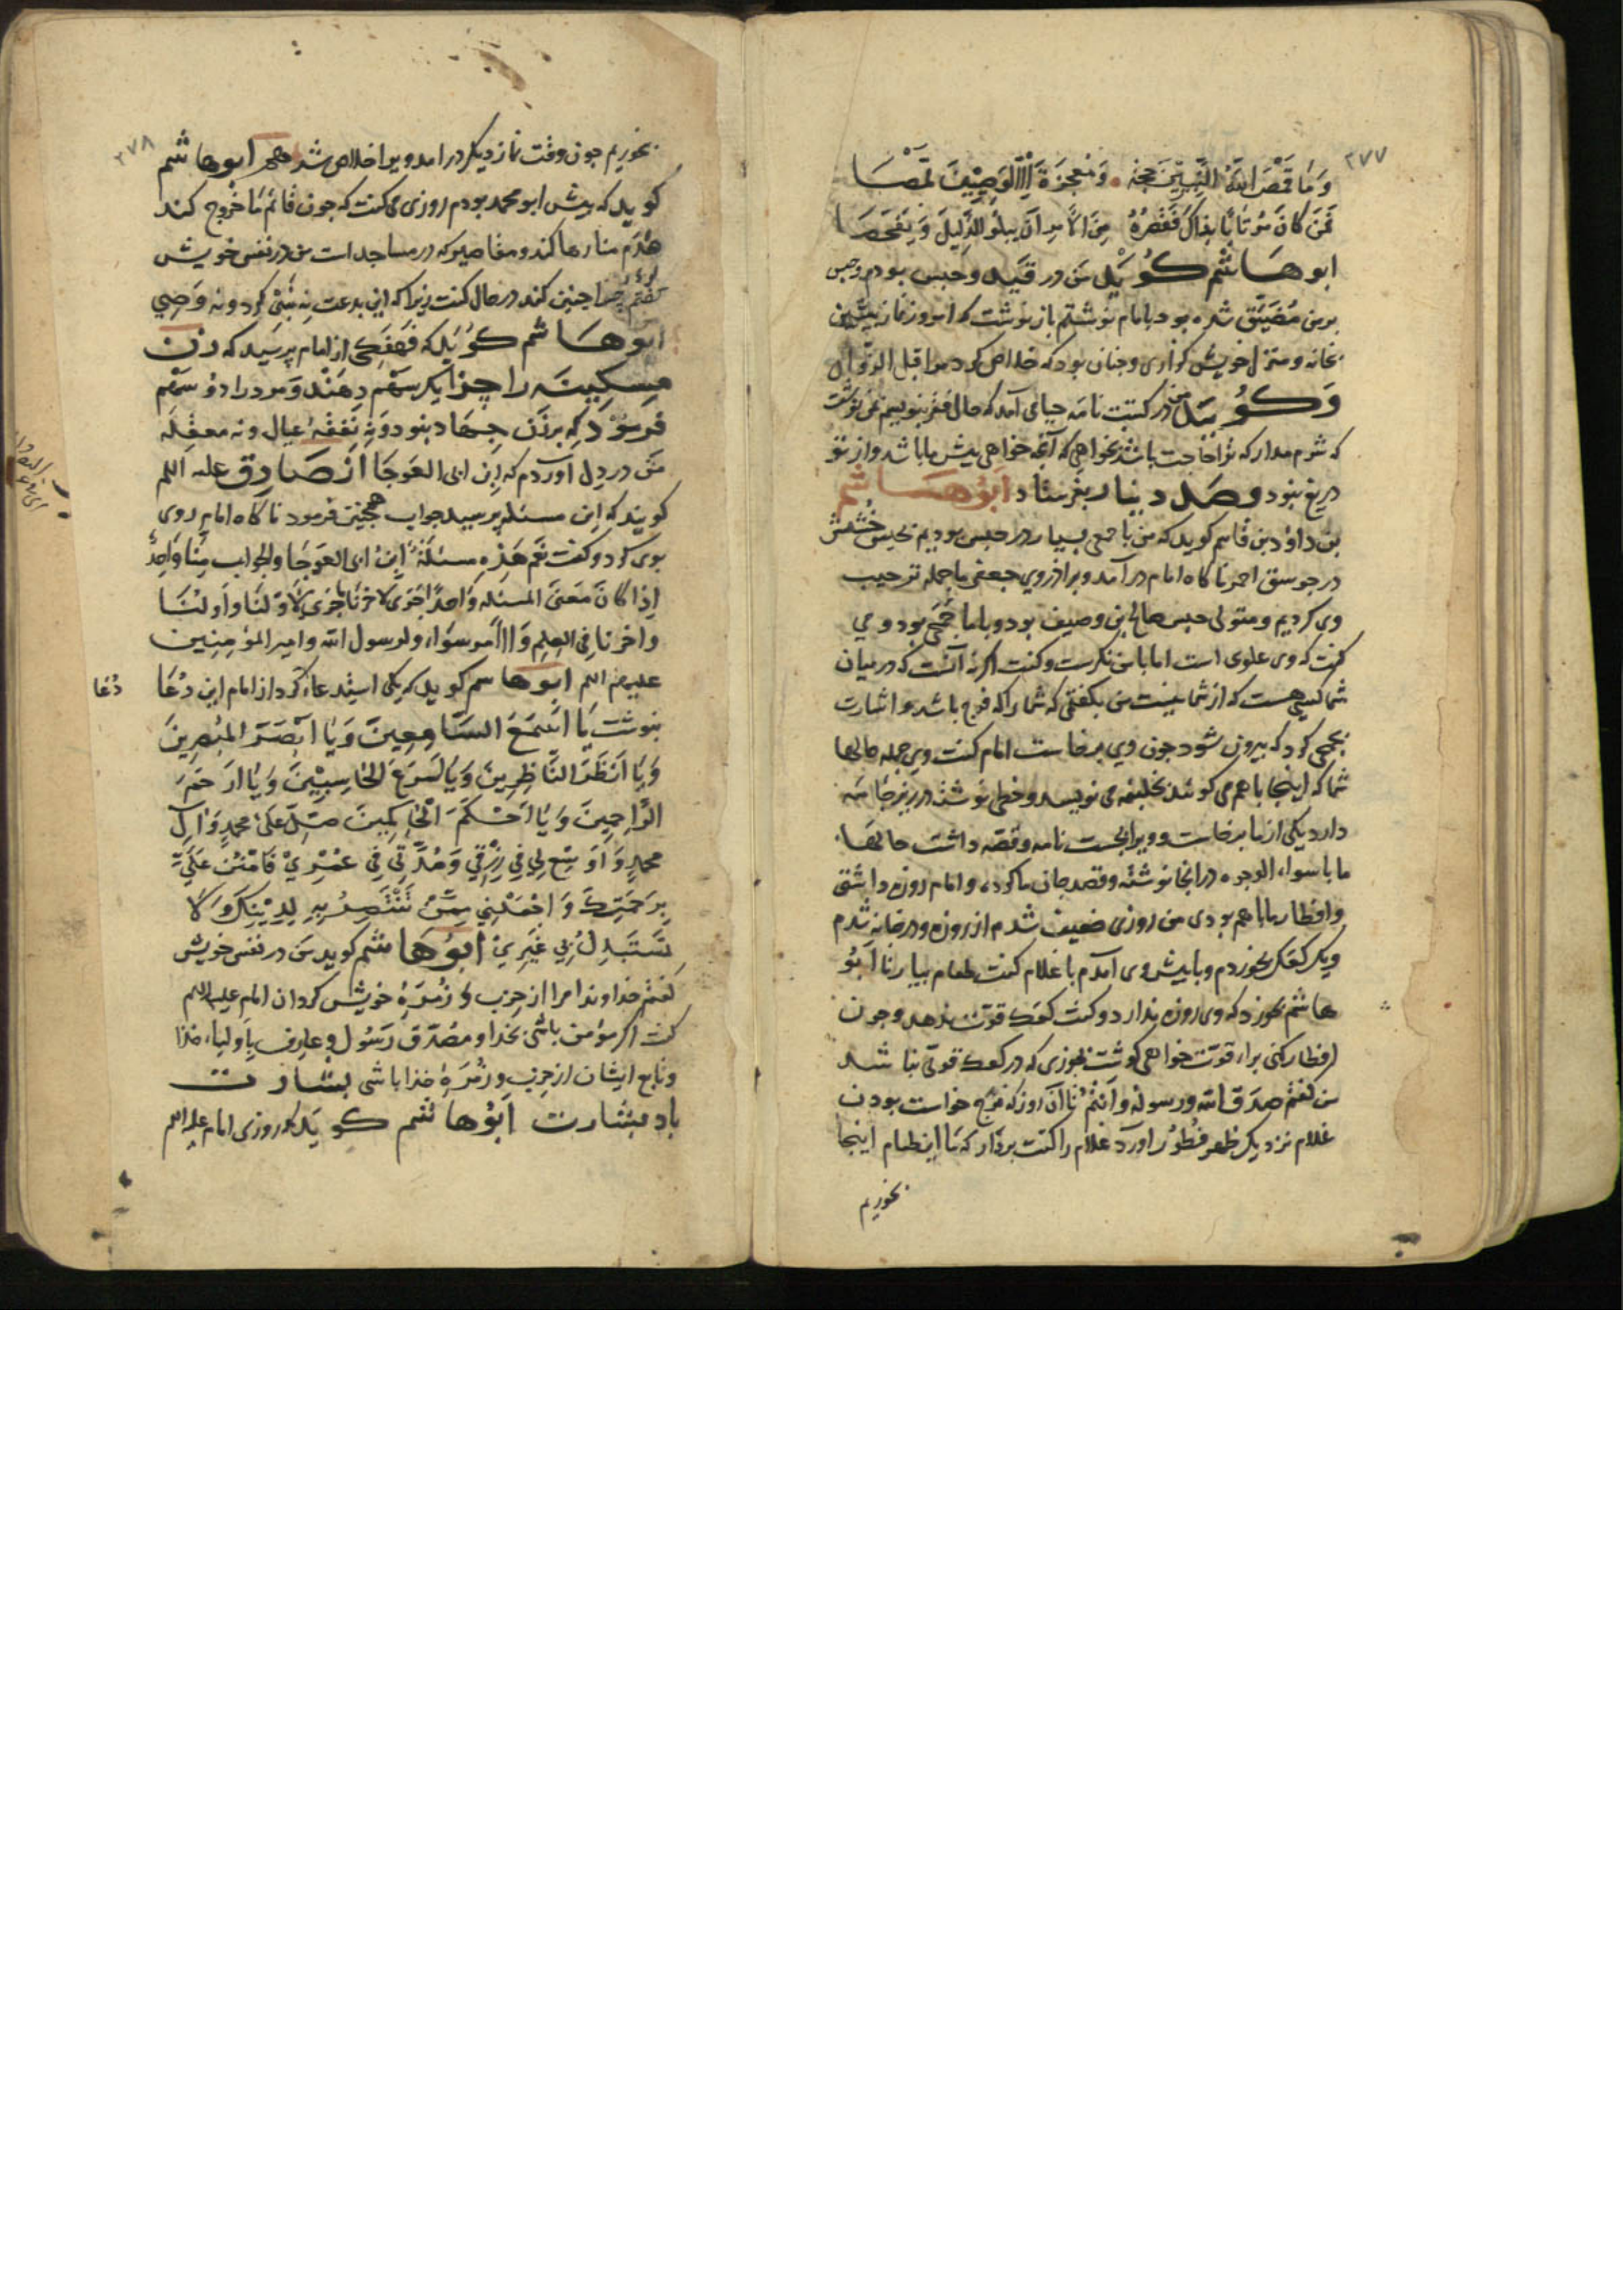 ٢٧٧
وَمَا قَمَّصَ اللهُ النَّبِيِّينَ حجة وَمُعْجِزَةً اِلَّا الوَصِيِّينَ قَمَّصَا
فَمَن كَانَ مُرْتَابًا بِذاكَ فَقَصْرُهُ مِنَ الأَمرِ اَن يبلُو الدَّلِيلَ وَيَفْحَصَا
ابوهاشم كُويَد من در قيد وحبس بودم وحبس
برمن مُضَيَّق شده بود بامام نوشتم باز نوشت كه امروز نماز پيشين
بخانه ومنزل خويش گزاری وچنان بود كه خلاص كرد مرا قبل الزوال
وَكُويَد من در كتبت نامه حيا می آمد كه حال فقر بنويسم نوشت
كه شرم مدار كه ترا حاجت باشد بخواهی كه آنچه خواهی پيش ما باشد واز تو
دريغ نبود وصد دينار بفرستاد ابُوهاشم
بن داوُد بن قاسم كويد كه من با جمعی بسيار در حبس بوديم بحبس
در جوسق احمر ناكاه امام در آمد وبرادروی جعفر ما جمله ترحيب
وی كرديم ومتولی حبس صالح بن وصيف بود وباما جُمَحی بود ومی
گفت كه وی علوی است امام با من نگرست وگفت اگر نه آنست كه در ميان
شما كسی هست كه از شما نيست من بگفتی كه شما را كه فرج باشد واشارت
بجمحی كرد كه بيرون شود چون وی برخاست امام گفت وی جمله حالها
شما كه اينجا باهم می گوئيد بخليفه می نويسد وخطی نوشته در زير جامه
دارد يكی از ما برخاست وويرا بجست نامه وقصه داشت حالها
ما باسواء الوجوه در آنجا نوشته وقصد جان ما كرده وامام روزه داشتی
وافطار ما باهم بودی من روزی ضعيف شدم از روزه ودر خانه شدم
ويك كعك بخوردم وباپيش وی آمدم با غلام گفت طعام بيار تا ابُو
هاشم بخورد كه وی روزه ندارد وگفت كعك قوت ندهد وچون
افطار كنی براء قوت خواهی گوشت بخوری كه در كعك قوتی نباشد
من گفتم صدق الله ورسوله وانتم تا آن روز كه فرج خواست بودن
غلام نزديك ظهر فطور آورد غلام را گفت بردار كه ما اين طعام اينجا
بخوريم
٢٧٨
بخوريم چون وقت نماز ديكر در امد ويرا خلاص شد هم ابوهاشم
كويد كه پيش ابومحمد بودم روزی می گفت كه چون قائم ما خروج كند
هَدْم منارها كند ومقاصير كه در مساجد است من در نفس خويش
كفتم چرا چنين كند در حال گفت زيرا كه اين بدعت نه نبی كرد ونه وَصِی
ابوهاشم كُويَد كه فَهْفَكی از امام پرسيد كه زن
مسكينه را چرا يك سهم دهند ومرد را دو سهم
فرمود كه بر زن جهاد نبود ونه نفقهٔ عيال ونه معقله
من در دل آوردم كه ابن ابی العوجا از صادق عليه السلم
گويند كه اين مسئله پرسيد جواب همچنين فرمود ناكاه امام روی
بوی كرد وكفت نَعَم هٰذِهِ مسئلَةُ ابنُ ابی العوجَا والجواب مِنَّا وَاحِدٌ
اِذا كَانَ مَعْنَى المسئله وَاحِداً جَرَى لآخِرنَا مَا جَرَى لِاَوَّلنَا وَاَوَّلنَا
واخرنا فِى العِلمِ وَالاَمرِ سَوَاء ولرسول الله وامير المؤمِنِين
عليهم السلم ابوهاسم كويد كه يكی استدعاء كرد از امام اين دُعَا
دُعَا
بنوشت يَا اَسْمَعَ السَّامِعِينَ وَيَا اَبْصَرَ المُبْصِرِينَ
وَيَا اَنْظَرَ النَّاظِرِينَ وَيَا اَسْرَعَ الحَاسِبِيْنَ وَيَا اَرْحَمَ
الرَّاحِمِينَ وَيَا اَحْكَمَ الحَاكِمِينَ صَلِّ عَلَىٰ محمدٍ وَاٰلِ
محمدٍ وَاَوْسِعْ لِي فِي رِزْقِي وَمُدَّ لِي فِي عُمْرِيْ فَامْنُنْ عَلَيَّ
بِرَحْمَتِكَ وَاجْعَلْنِي مِمَّنْ تَنْتَصِرُ بِهِ لِدِيْنِكَ وَلَا
تَسْتَبْدِلُ بِي غَيْرِي ابُوهَاشم كويد من در نفس خويش
كفتم خداوندا مرا از حِزب وزُمرهٔ خويش كردان امام عليه السلم
كفت اكر مؤمن باشی بخدا ومُصَدِّق رَسُول وعارف بِاَولياء خدا
وتابع ايشان از حزب وزُمرهٔ خدا باشی بشارت
باد بشارت ابُوهاشم كويَد كه روزی امام عليه السلم